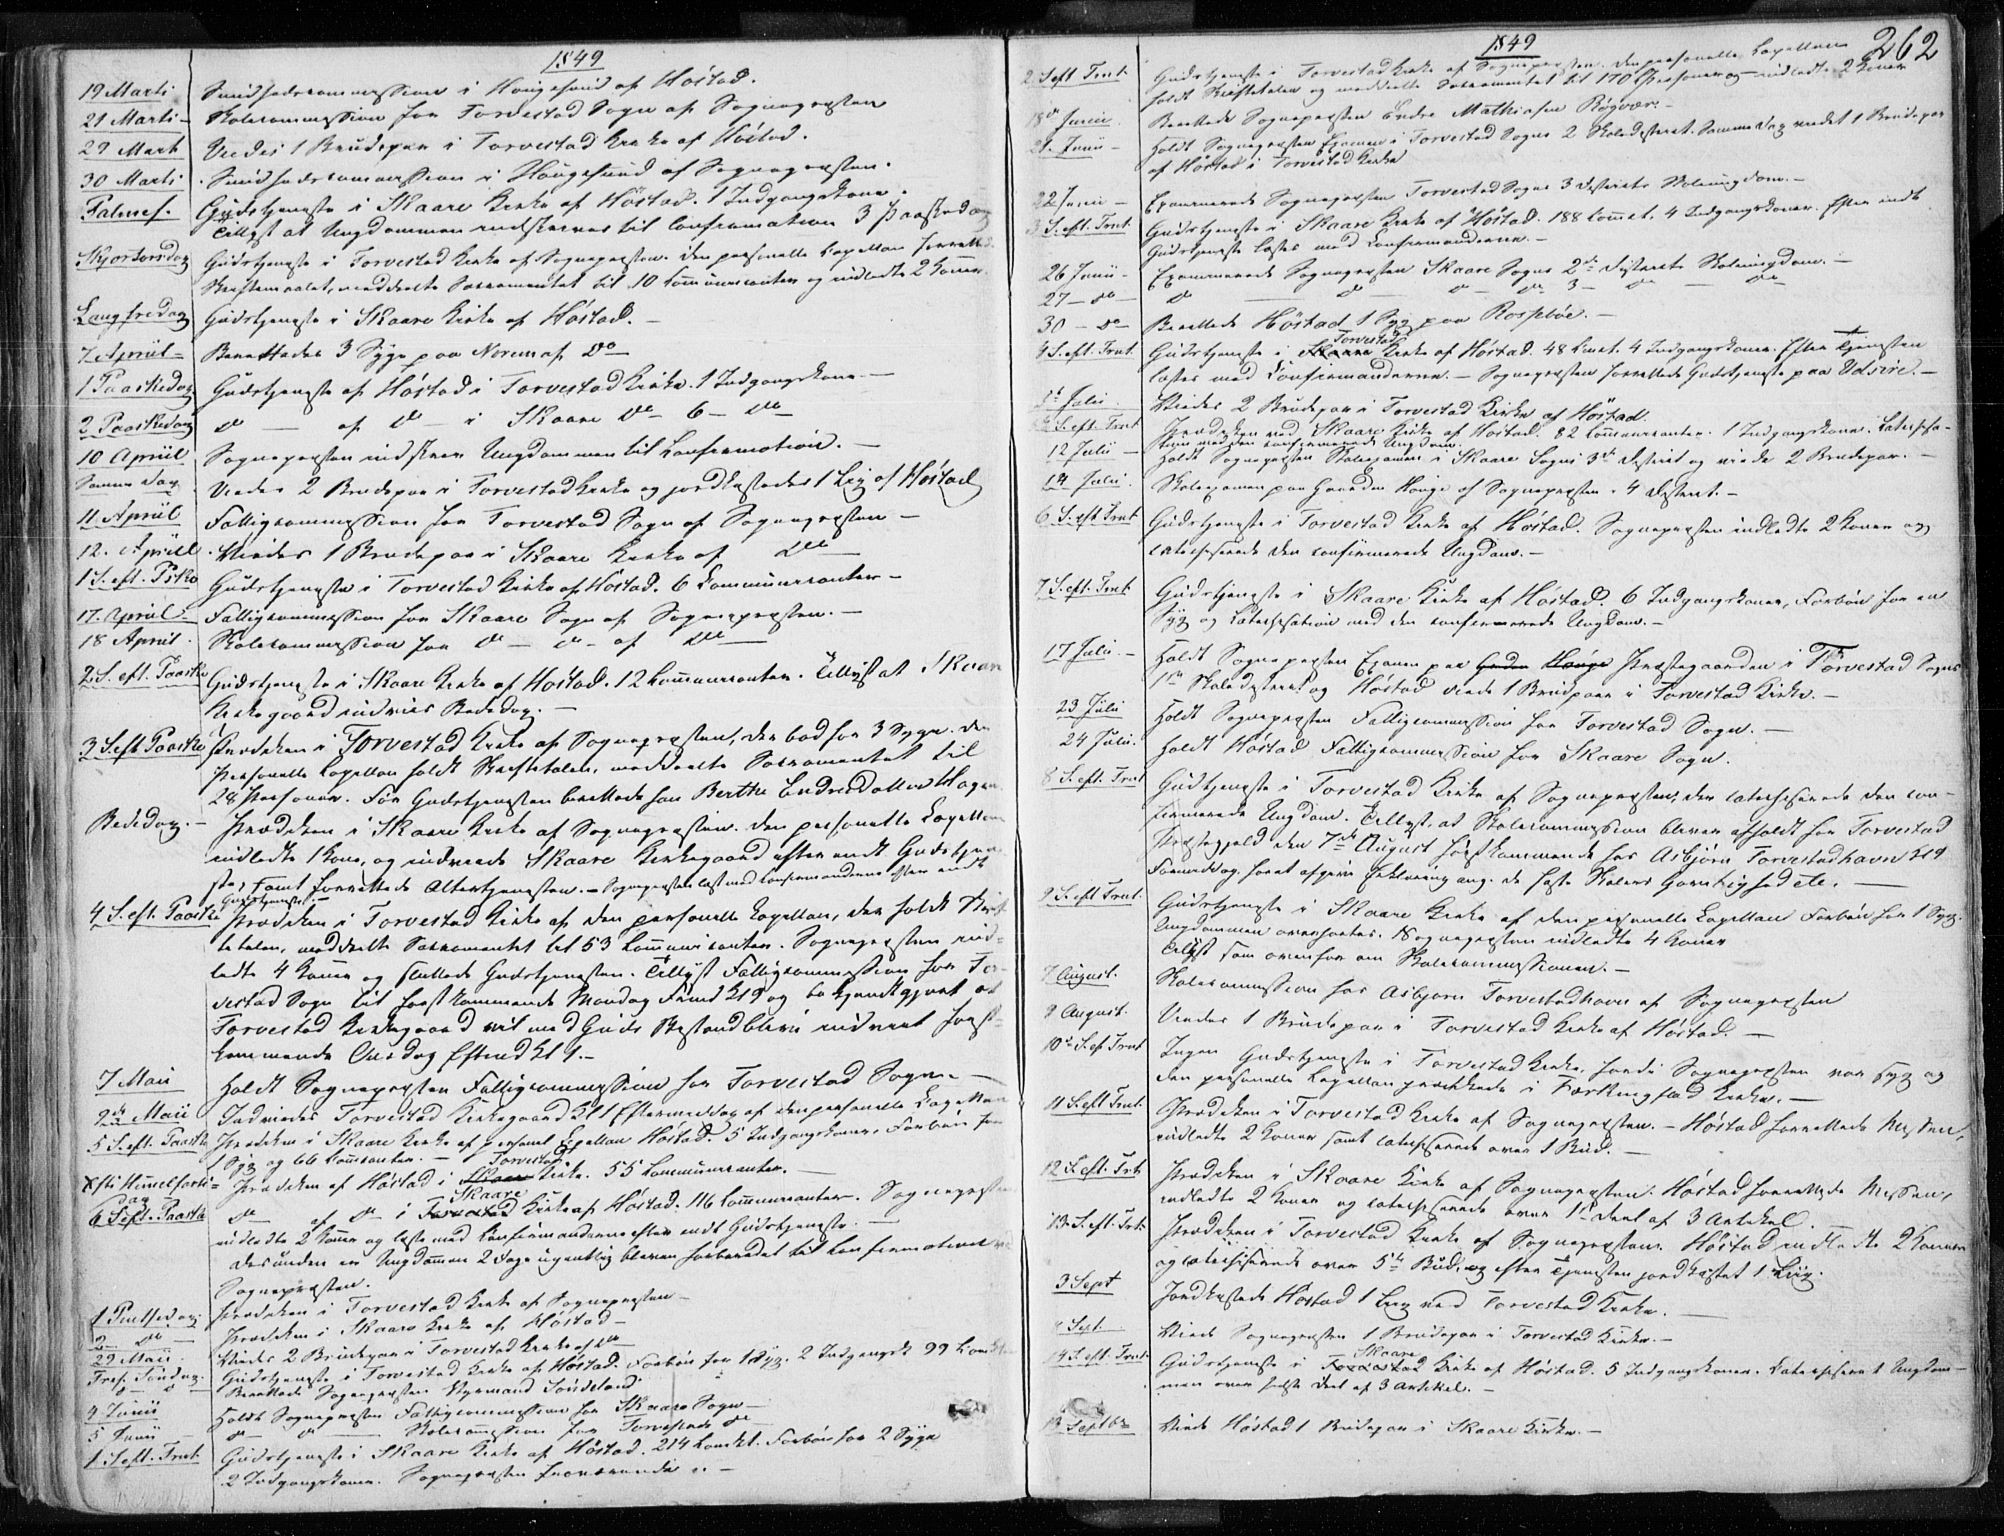 1849
19 Marti Sundhedscommission i Haugesund af Höstad.
21 Marti - Skolecommission for Torvestad Sogn af Sognepræsten
29 Marti Viedes 1 Brudepar i Torvestad Kirke af Höstad.
30 Marti Sundhedscommission i Haugesund af Sognepræsten.
Palmes. Gudstjeneste i Skaare Kirke af Höstad. 1 Indgangskone.
Tillyst at Ungdommen indskrives til Confirmation 3 Paaskedag
Skjærtorsdag Gudstjeneste i Torvestad Kirke af Sognepræsten. Den personelle Capellan forrettede
Skriftemaalet, meddeelte Sacramentet til 10 Communicanter og indledte 2 Koner.
Langfredag Gudstjeneste i Skaare Kirke af Höstad. -
7 Apriil - Berettedes 3 Syge paa Norem af Do
1 Paaskedag Gudstjeneste af Höstad i Torvestad Kirke. 1 Indgangskone -
2 Paaskedag do - af do - i Skaare do 6 - do
10 Apriil Sognepræsten indskrev Ungdommen til Confirmation. -
Samme Dag Viedes 2 Brudepar i Torvestad Kirke og jordkastedes 1 Lig af Höstad
11 Apriil Fattigcommission for Torvestad Sogn af Sognepræsten -
12. Apriil Viedes 1 Brudepar i Skaare Kirke af do
1 S. eft. Pske Gudstjeneste i Torvestad Kirke af Höstad. 6 Communicanter -
17. Apriil Fattigcommission for Skaare Sogn af Sognepræsten. -
18 Apriil Skolecommission for do - do - af do
2 S. eft. Paaske Gudstjeneste i Skaare Kirke af Höstad. 12 Communicanter. Tillyst at Skaare
Kirkegaard indvies Bededag. -
3 S. eft Paaske Prædiken i Torvestad Kirke af Sognepræsten, der bad for 3 Syge. Den
personelle Capellan holdt Skriftetalen, meddeelte Sacramentet til
28 Personer. Før Gudstjenesten berettede han Berthe Endresdatter Hagen
Bededag. - Prædiken i Skaare Kirke af Sognepræsten. Den personelle Capellan
indledte 1 Kone, og indviede Skaare Kirkegaard efter endt Gudstjene-
ste, samt forrettede Altertjenesten. - Sognepræsten læst med Confirmanderne efter endt
Gudstjeneste. -
4 S. eft. Paaske Prædiken i Torvestad Kirke af den personelle Capellan, der holdt Skrif-
tetalen, meddeelte Sacramentet til 53 Communicanter. Sognepræsten ind-
ledte 4 Koner og sluttede Gudstjenesten. Tillyst Fattigcommission for Tor-
vestad Sogn til førstkommende Mandag Formd Kl 9 og bekjendtgjort at
Torvestad Kirkegaard vil med Guds Bistand blive indviet først-
kommende Onsdag Eftmd Kl 1. -
7 Maii Holdt Sognepræsten Fattigcommission for Torvestad Sogn. -
9de Maii Indviedes Torvestad Kirkegaard Kl 1 Eftermiddag af den personelle Capellan
5 S. eft. Paaske Prædiken i Skaare Kirke af personl Capellan Höstad. 5 Indgangskoner, Forbøn for
1 Syg og 66 Communicanter. - Torvestad
Chr. Himmelfarts-dag Prædiken af Höstad i Skaare Kirke. 55 Communicanter. -
Skaare
6 S. eft. Paaske do af do i Torvestad Kirke af Höstad. 116 Communicanter. Sognepræsten
indledte 2 Koner og læste med Confirmanderne efter endt Gudstjeneste. -
Desuden er Ungdommen 2 Dage ugentlig bleven forberedet til Confirmationen
Sognepræsten.
1 Pintsedag. Prædiken i Torvestad Kirke af Sognepræsten -
2 do Prædiken i Skaare Kirke af Höstad -
29 Maii Viedes 2 Brudepar i Torvestad Kirke af do
Tref. Søndag. Gudstjeneste i Torvestad Kirke af Höstad. Forbøn for 1 Syg. 2 Indgangsk. 99 Com
do - do Berettede Sognepræsten
4 Junii Holdt Sognepræsten Fattigcommission for Skaare Sogn -
5 Junii do do Skolecommission for Torvestad do
1 S. eft. Trnt. Gudstjeneste i Skaare Kirke af Höstad. 214 Comct. Forbøn for 2 Syge
2 Indgangskoner. Sognepræsten
1849
262
2 S. eft. Trnt. Gudstjeneste i Torvestad Kirke af Sognepræsten. Den personelle Capellan
holdt Skriftetalen og meddeelte Sacramentet til 170 Personer og indledte 2 Koner
18de Junii Berettede Sognepræsten Endre Mathiasen Røgvær. -
21. Junii - Holdt Sognepræsten Examen i Torvestad Sogns 2 Skoledistrict. Samme Dag viedet 1 Brudepar
af Höstad i Torvestad Kirke
22 Junii - Examinerede Sognepræsten Torvestad Sogns 3 Districts Skoleungdom. -
3 S. eft. Trnt. Gudstjeneste i Skaare Kirke af Höstad. 188 Comct. 4 Indgangskoner. Efter endt
Gudstjeneste læstes med Confirmanderne. -
26 Junii - Examinerede Sognepræsten Skaare Sogns 2de Districts Skoleungdom. -
27 - do - do - do - do - do 3 - do - do
30 - do - Berettede Höstad 1 Syg paa Rossebøe. -
Torvestad
4 S. eft. Trnt. Gudstjeneste i Skaare Kirke af Höstad. 48 Comct. 4 Indgangskoner. Efter Tjenesten
læstes med Confirmanderne. - Sognepræsten forrettede Gudstjeneste paa Udsire. -
Julii Viedes 2 Brudepar i Torvestad Kirke af Höstad.
5 S. eft. Trnt Prædiken ved Skaare Kirke af Höstad. 82 Communicanter. 1 Indgangskone. Catechisa-
tion med den confirmerede Ungdom.
12 Julii - Holdt Sognepræsten Skoleexamen i Skaare Sogns 3de District og viede 2 Brudepar. -
14 Julii. Skoleexamen paa Gaarden Hauge af Sognepræsten i 4 District. -
6. S. eft Trnt. Gudstjeneste i Torvestad Kirke af Höstad. Sognepræsten indledte 2 Koner og
catechiserede den confirmerede Ungdom. -
7 S. eft. Trnt Gudstjeneste i Skaare Kirke af Höstad. 6 Indgangskoner, Forbøn for en
Syg og Catechisation med den confirmerede Ungdom. -
17 Julii. - Holdt Sognepræsten Examen paa Hauge Præstegaarden i Torvestad Sogns
1ste Skoledistrict og Höstad viede 1 Brudpar i Torvestad Kirke. -
23 Julii Holdt Sognepræsten Fattigcommission for Torvestad Sogn. -
24 Julii. Holdt Höstad Fattigcommission for Skaare Sogn.
8 S. eft. Trnt Gudtjeneste i Torvestad Kirke af Sognepræsten, der catechiserede den con-
firmerede Ungdom. Tillyst at Skolecommission bliver afholdt for Torvestad
Præstegjeld den 7de August førstkommende hos Asbjørn Torvestadhavn Kl 9
Formiddag. hvor afgives Erklæring ang. de faste Skolers Gavnlighed etc. -
9 S. eft Trnt. Gudstjeneste i Skaare Kirke af den personelle Capellan Forbøn for 1 Syg.
Ungdommen overhørtes. Sognepræsten indledte 4 Koner
Tillyst som ovenfor om Skolecommissionen. -
7 August. Skolecommission hos Asbjørn Torvestadhavn af Sognepræsten
9 August. Viedes 1 Brudepar i Torvestad Kirke af Höstad. -
10de S. ef. Trnt Ingen Gudstjeneste i Torvestad Kirke, fordi Sognepræsten var syg og
den personelle Capellan prædikede i Færkingstad Kirke. -
11 S. eft Trnt. Prædiken i Torvestad Kirke af Sognepræsten. - Höstad forrettede Messen,
indledte 2 Koner samt catechiserede over 1 Bud. -
12 S. eft. Trt. Prædiken i Skaare Kirke af Sognepræsten. Höstad forrettede Messen,
indledte 2 Koner og catechiserede over 1ste Deel af 3 Artikel.
13. S. eft. Trt. Prædiken i Torvestad Kirke af Sognepræsten. Höstad indledte 2 Koner
og catechiserede over 5te Bud, og efter Tjenesten jordkastet 1 Liig.
3 Sept Jordkastede Höstad 1 Liig ved Torvestad Kirke. -
Sept. Viede Sognepræsten 1 Brudepar i Torvestad Kirke. -
Skaare
14 S. eft. Trnt. Gudstjeneste i Torvestad Kirke af Höstad. 5 Indgangskoner. Catechiseret Ungdom-
men over sidste Deel af 3 Artikel. -
13 Septbr Viede Höstad 1 Brudepar i Skaare Kirke. -